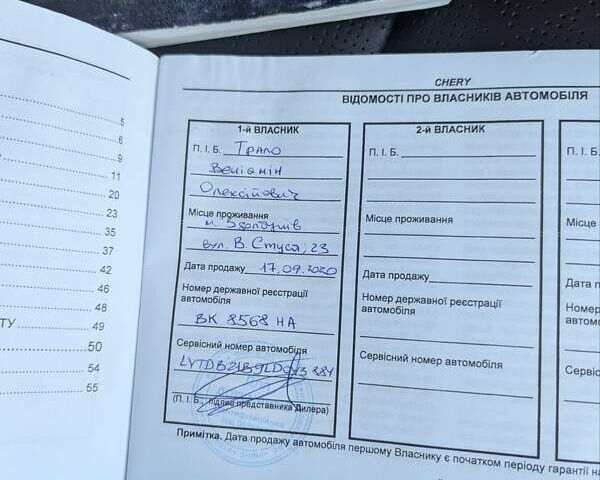 5
6
9
11
20
23
35
37
42
46
48
ТУ 49
50
54
55
CHERY
ВІДОМОСТІ ПРО ВЛАСНИКІВ АВТОМОБІЛЯ
1-й ВЛАСНИК
П. І. Б. Трало
Веніамін
Олексійович
Місце проживання
м. Здолбунів
вул. В. Стуса, 23
Дата продажу 17.09.2020
Номер державної реєстрації
автомобіля
ВК 8568 НА
Сервісний номер автомобіля
(П. І. Б., підпис представника Дилера)
2-й ВЛАСНИК
П. І. Б.
Місце проживання
Дата продажу
Номер державної реєстрації
автомобіля
Сервісний номер автомобіля
П. І. Б.
Місце
Дата п
Номер
автомо
Сервісн
Примітка. Дата продажу автомобіля першому Власнику є початком періоду гарантії на